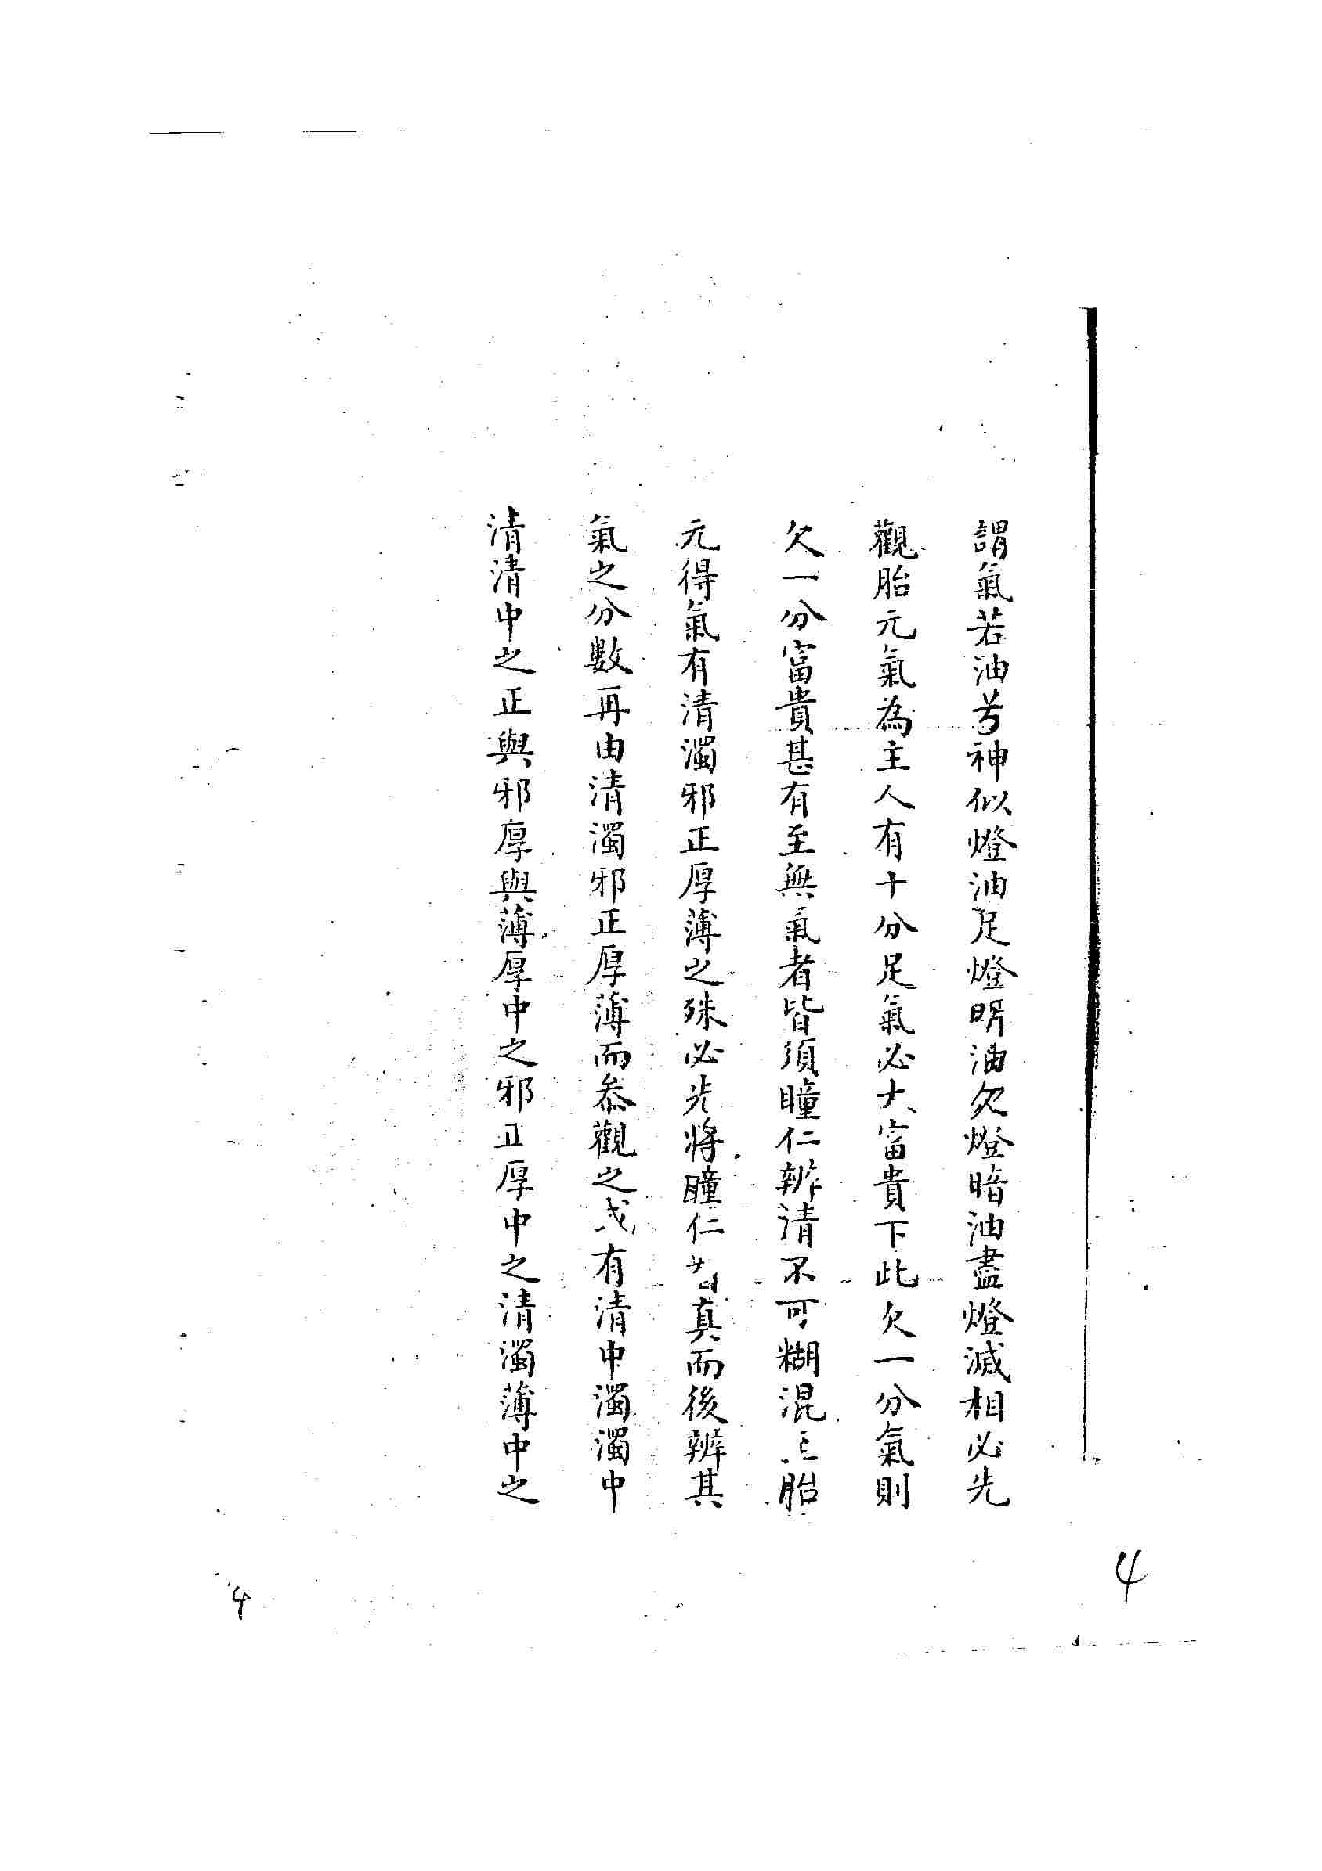 謂氣若油兮神似燈油足燈明油欠燈暗油盡燈滅相必先
觀胎元氣為主人有十分足氣必大富貴下此欠一分氣則
欠一分富貴甚有至無氣者皆須瞳仁辦清不可糊混胎
元得氣有清濁邪正厚薄之殊必先將瞳仁真而後辦其
氣之分數再由清濁邪正厚薄而叅觀之或有清中濁濁中
清清中之正與邪厚與薄厚中之邪正厚中之清濁薄中之
4
4